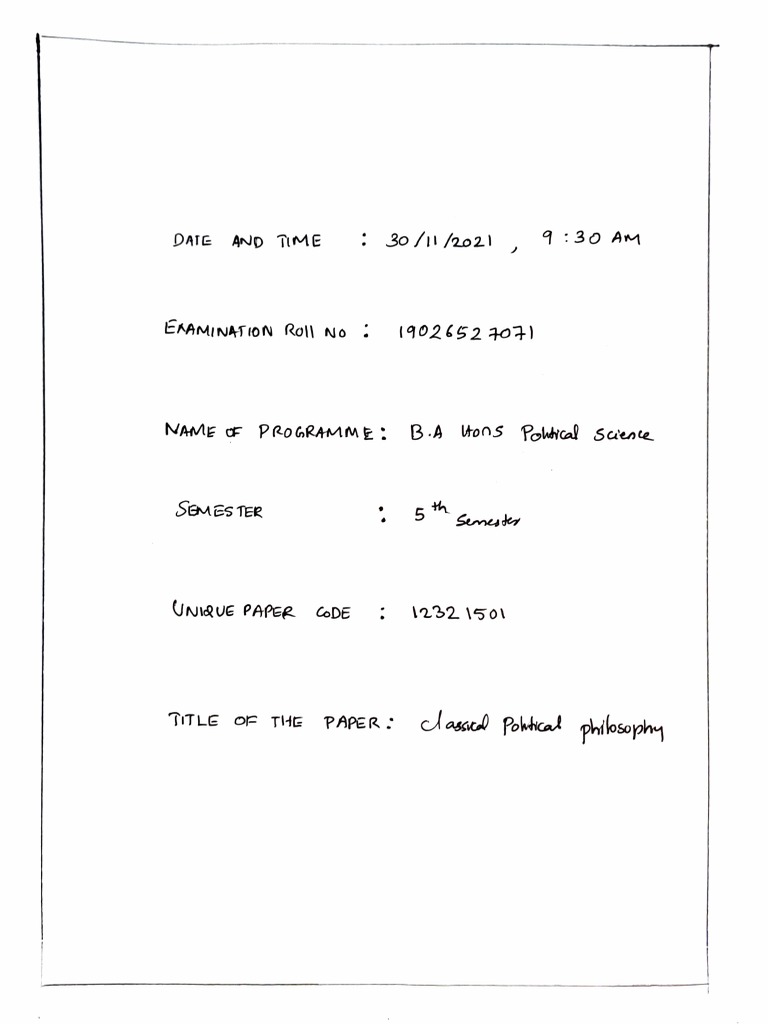 DATE AND TIME : 30/11/2021 , 9:30 AM
EXAMINATION Roll No : 19026527071
NAME OF PROGRAMME: B.A Hons Political Science
SEMESTER : 5th Semester
UNIQUE PAPER CODE : 12321501
TITLE OF THE PAPER: Classical Political philosophy